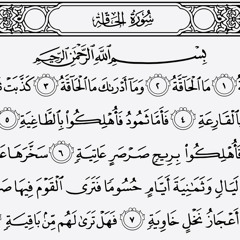 سُورَةُ الحَاقَّةِ
بِسْمِ اللَّهِ الرَّحْمَٰنِ الرَّحِيمِ
١ مَا الْحَاقَّةُ ٢ وَمَا أَدْرَىٰكَ مَا الْحَاقَّةُ ٣ كَذَّبَتْ
بِالْقَارِعَةِ ٤ فَأَمَّا ثَمُودُ فَأُهْلِكُوا بِالطَّاغِيَةِ ٥
فَأُهْلِكُوا بِرِيحٍ صَرْصَرٍ عَاتِيَةٍ ٦ سَخَّرَهَا عَ
لَيَالٍ وَثَمَٰنِيَةَ أَيَّامٍ حُسُومًا فَتَرَى الْقَوْمَ فِيهَا صَ
أَعْجَازُ نَخْلٍ خَاوِيَةٍ ٧ فَهَلْ تَرَىٰ لَهُم مِّنۢ بَاقِيَةٍ